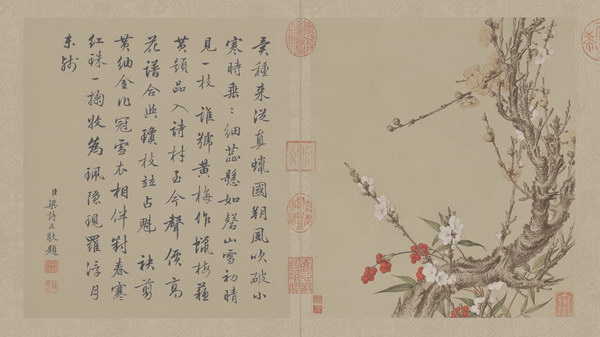 異種来從真蠟國朔風吹破小
寒時垂〻細蕊懸如磬山雪初晴
見一枝 誰號黃梅作蠟梅蘓
黃題品入詩材至今聲價高
花譜合與瓊枝竝占魁 袂剪
黃紬金作冠雪衣相伴對春寒
紅珠一掬收為珮隱現羅浮月
未殘
臣梁詩正敬題